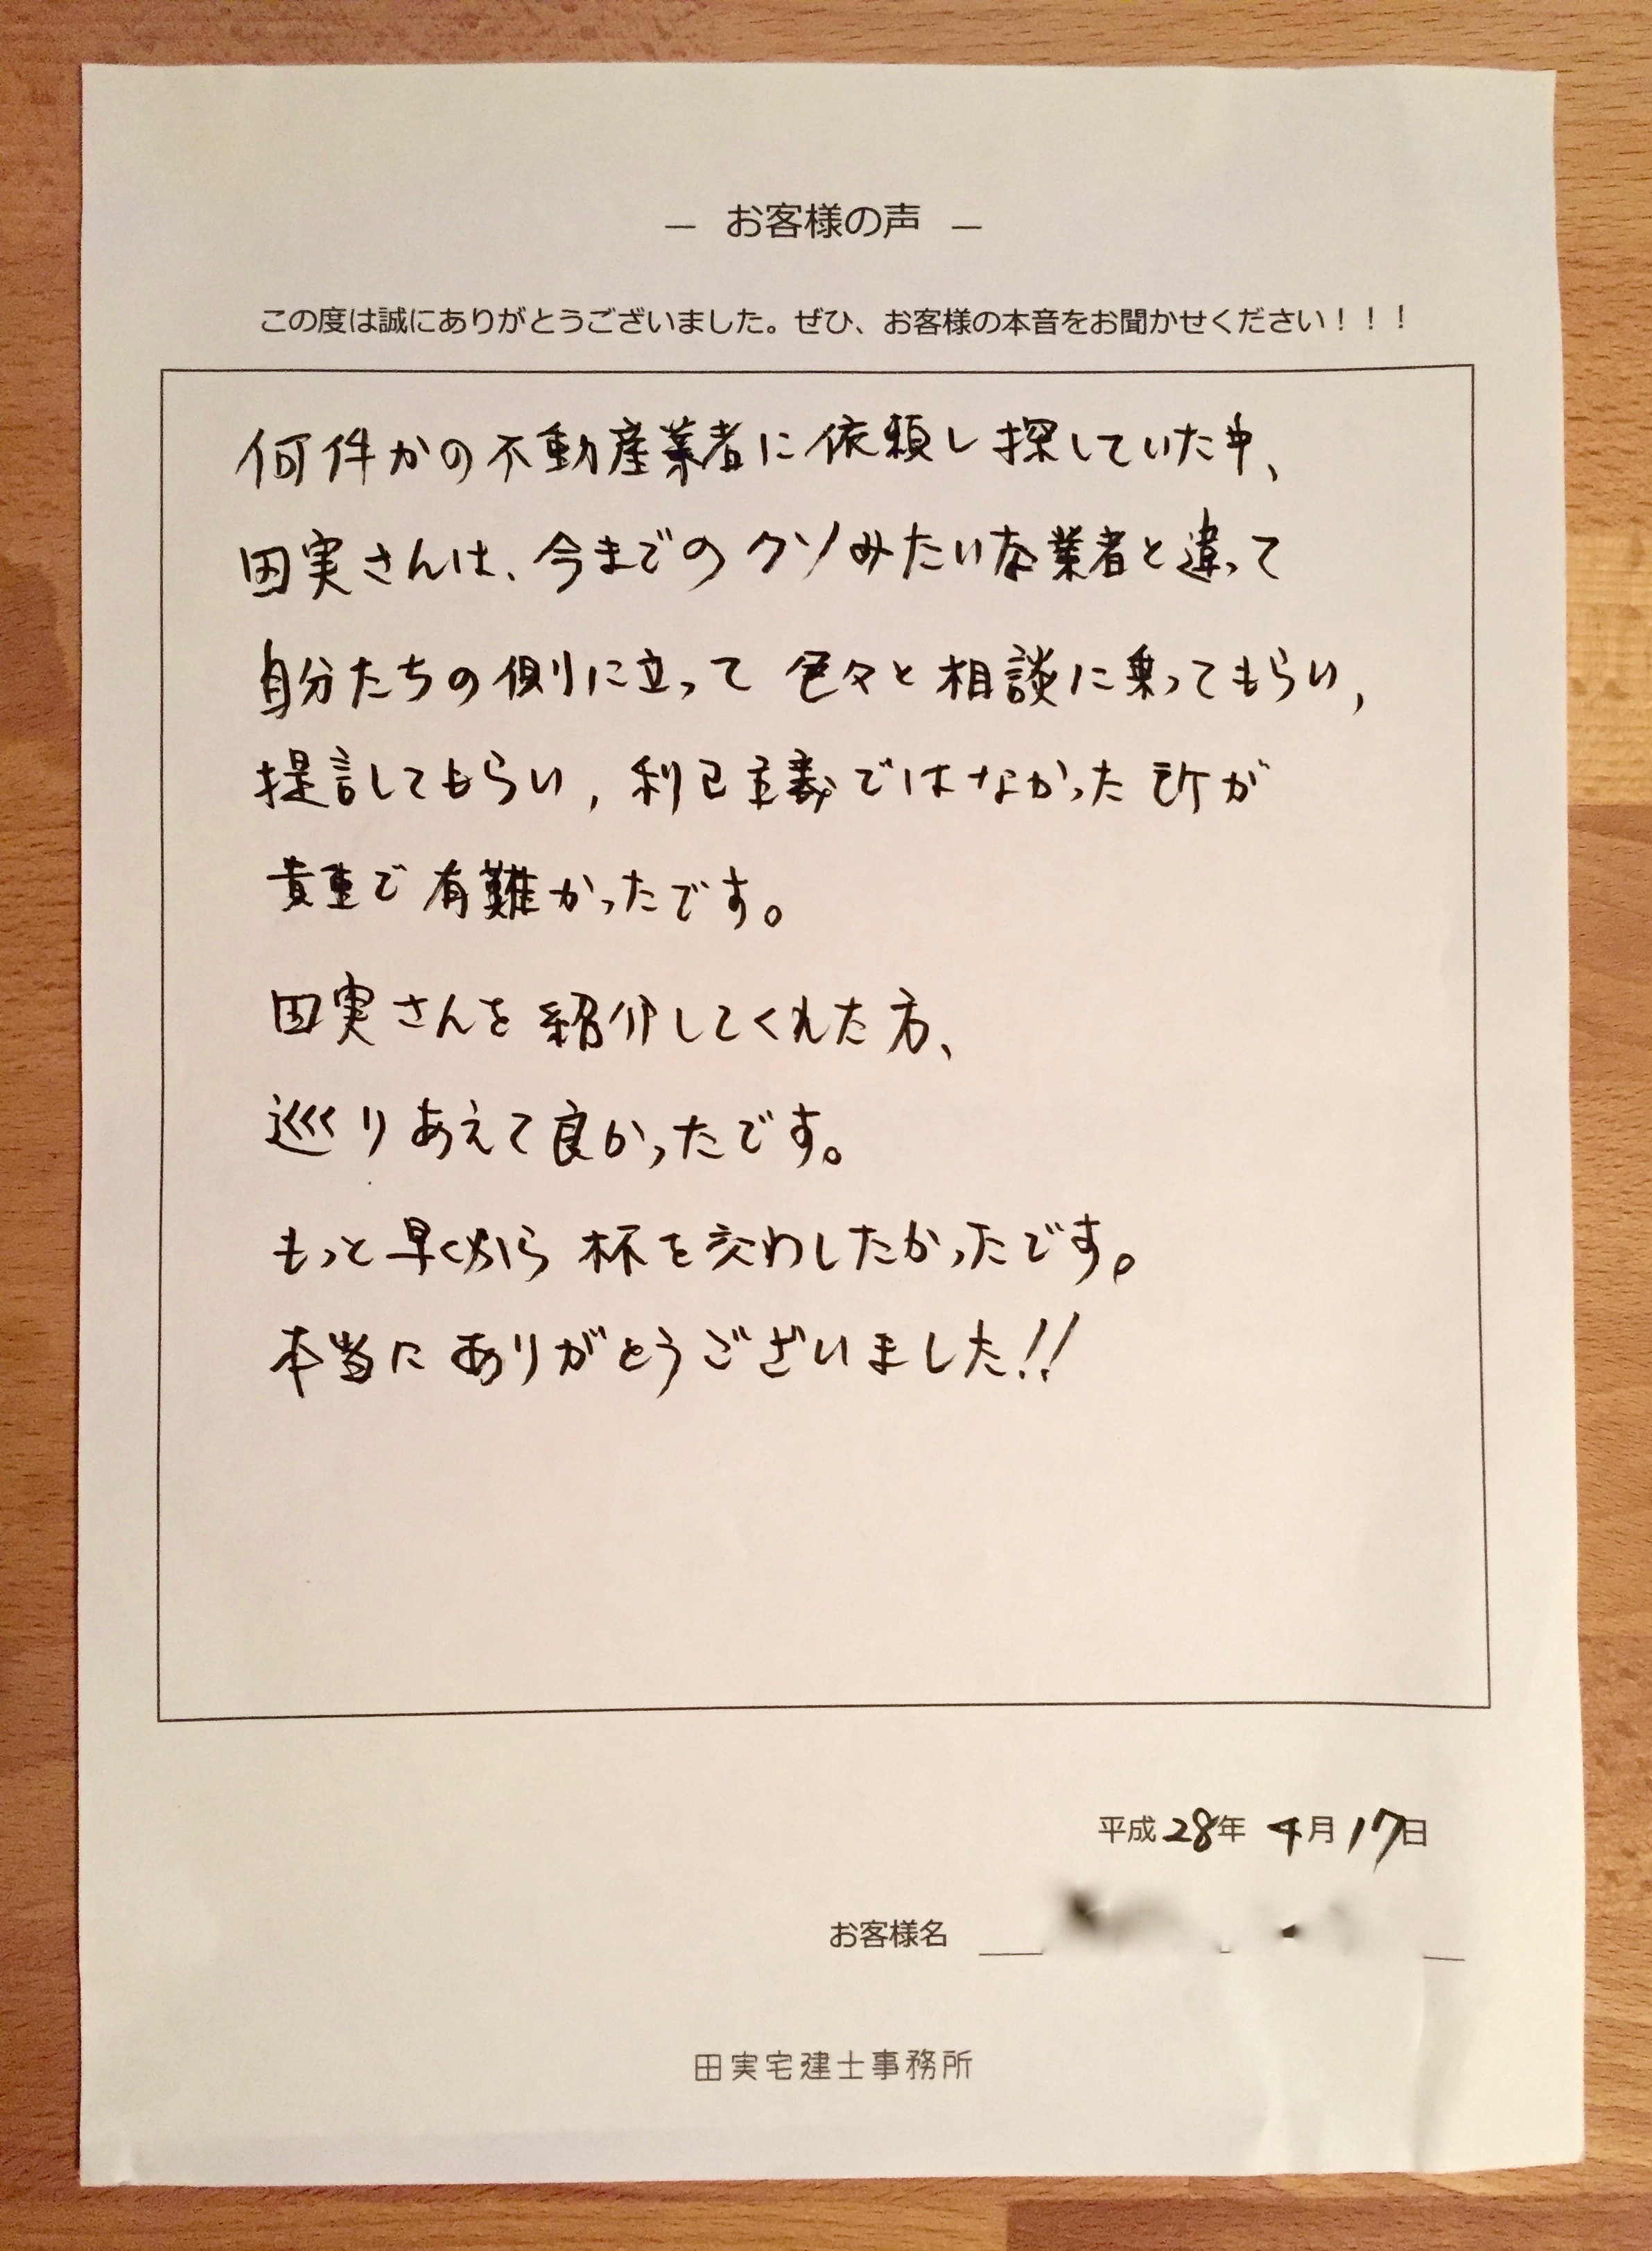 ― お客様の声 ―
この度は誠にありがとうございました。ぜひ、お客様の本音をお聞かせください！！！
何件かの不動産業者に依頼し探していた中、
田実さんは、今までのクソみたいな業者と違って
自分たちの側に立って色々と相談に乗ってもらい,
提言してもらい,利己主義ではなかった所が
貴重で有難かったです。
田実さんを紹介してくれた方、
巡りあえて良かったです。
もっと早くから杯を交わしたかったです。
本当にありがとうございました!!
平成28年 4月17日
お客様名
田実宅建士事務所